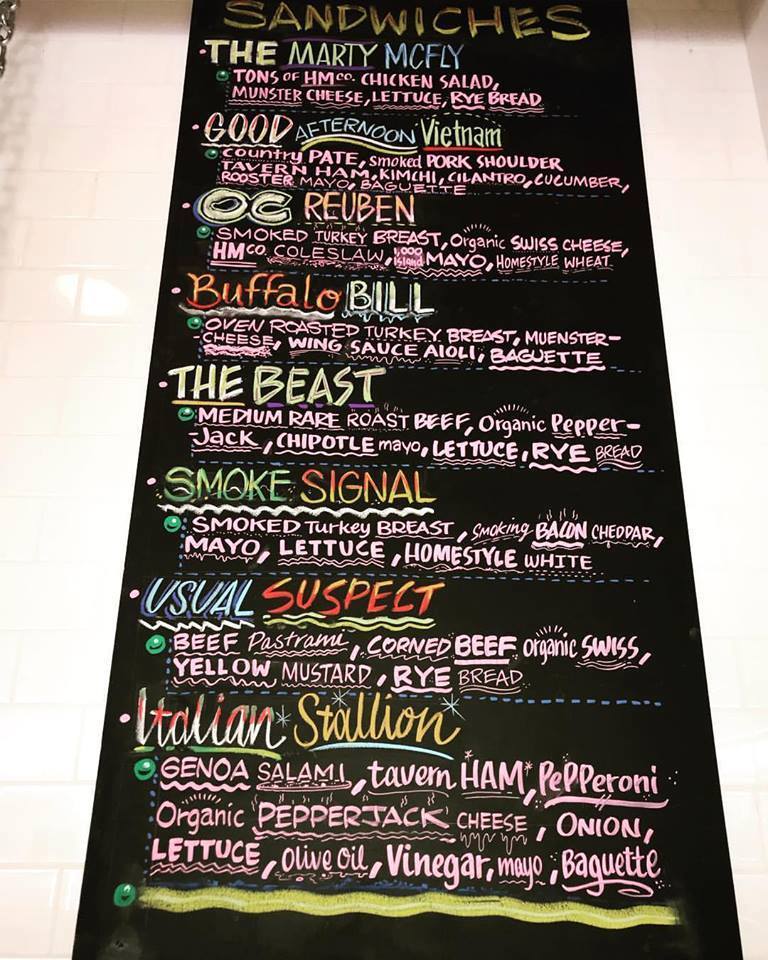 SANDWICHES
THE MARTY MCFLY
TONS OF HMCO. CHICKEN SALAD,
MUNSTER CHEESE, LETTUCE, RYE BREAD
GOOD AFTERNOON Vietnam
Country PATE, smoked PORK SHOULDER
TAVERN HAM, KIMCHI, CILANTRO, CUCUMBER,
ROOSTER MAYO, BAGUETTE
OG REUBEN
SMOKED TURKEY BREAST, Organic SWISS CHEESE,
HMCO COLESLAW, 1,000 Island MAYO, HOMESTYLE WHEAT.
Buffalo BILL
OVEN ROASTED TURKEY BREAST, MUENSTER-
-CHEESE, WING SAUCE AIOLI, BAGUETTE
THE BEAST
MEDIUM RARE ROAST BEEF, Organic Pepper-
-Jack, CHIPOTLE mayo, LETTUCE, RYE BREAD
SMOKE SIGNAL
SMOKED Turkey BREAST, Smoking BACON CHEDDAR,
MAYO, LETTUCE, HOMESTYLE WHITE
USUAL SUSPECT
BEEF Pastrami, CORNED BEEF organic SWISS,
YELLOW MUSTARD, RYE BREAD
Italian Stallion
GENOA SALAMI, tavern HAM, PePPeroni
Organic PEPPERJACK CHEESE, ONION,
LETTUCE, Olive Oil, Vinegar, mayo, Baguette